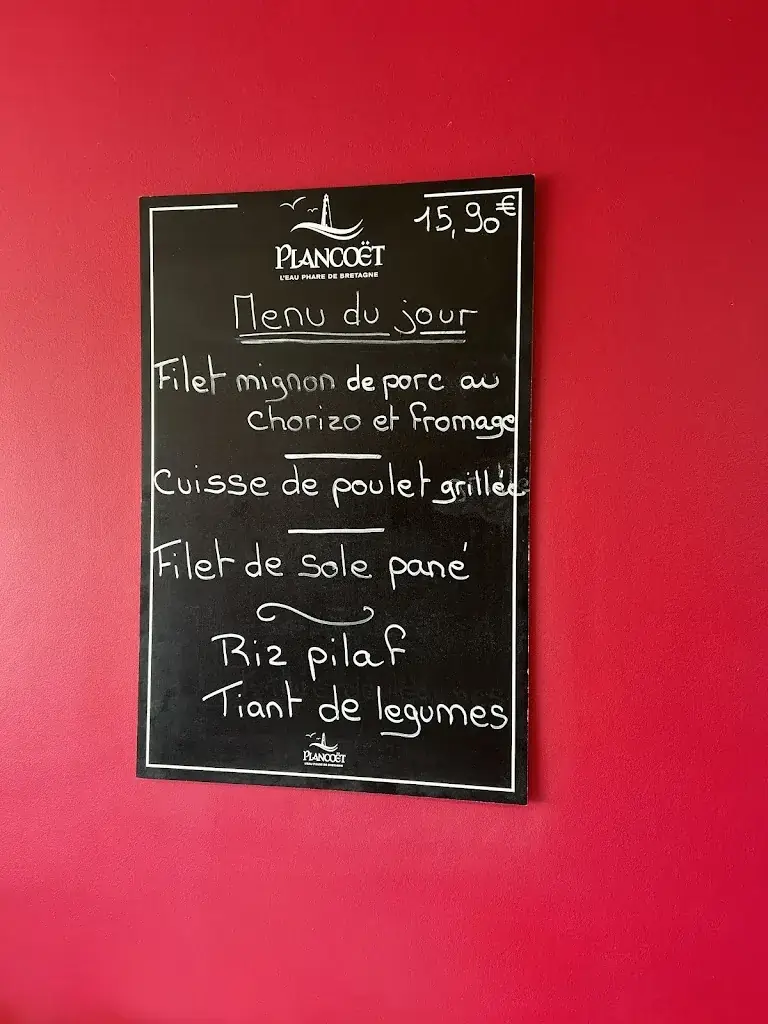 15,90€
PLANCOËT
L'EAU PHARE DE BRETAGNE
Menu du jour
Filet mignon de porc au
chorizo et fromage
Cuisse de poulet grillée
Filet de sole pané
Riz pilaf
Tiant de legumes
PLANCOËT
L'EAU PHARE DE BRETAGNE